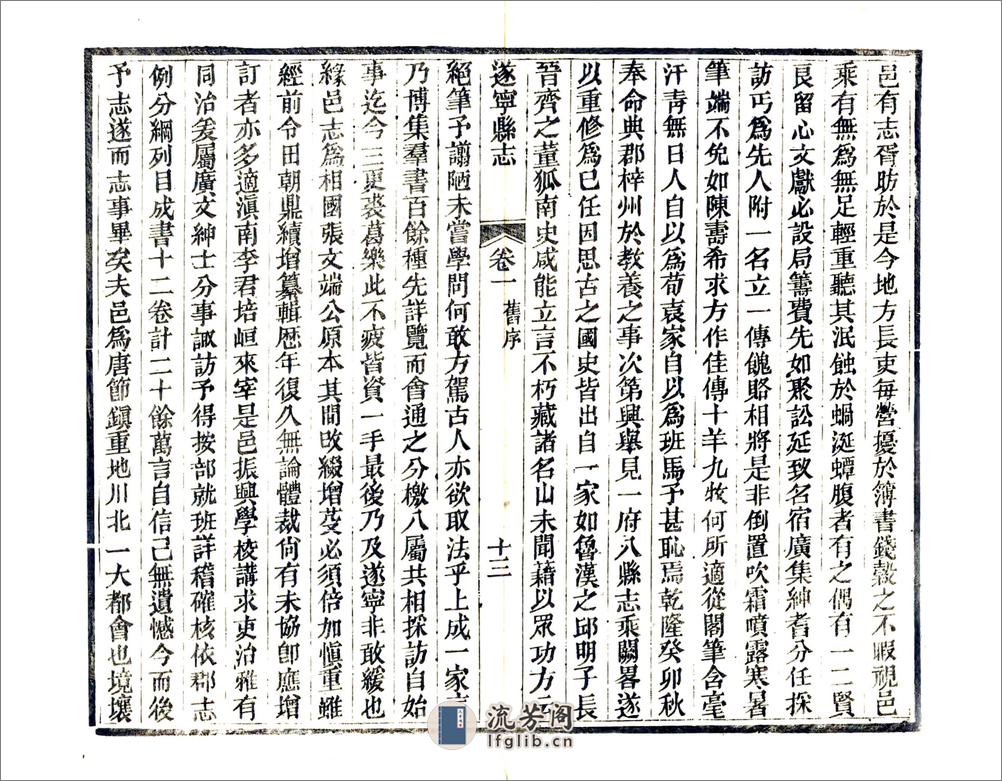 邑有志胥昉於是今地方長吏每營擾於簿書錢穀之不暇視邑
乘有無爲無足輕重聽其泯蝕於蝸涎蟫腹者有之偶有一二賢
良留心文獻必設局籌費先如聚訟延致名宿廣集紳耆分任採
訪丐爲先人附一名立一傳餽賂相將是非倒置吹霜噴露寒暑
筆端不免如陳壽希求方作佳傳十羊九牧何所適從閣筆含毫
汗青無日人自以爲荀袁家自以爲班馬予甚恥焉乾隆癸卯秋
奉命典郡梓州於教養之事次第興舉見一府八縣志乘闕畧遂
以重修爲己任因思古之國史皆出自一家如魯漢之邱明子長
晉齊之董狐南史咸能立言不朽藏諸名山未聞籍以眾功方
遂寧縣志
卷一 舊序
十三
絕筆予謭陋未嘗學問何敢方駕古人亦欲取法乎上成一家
乃博集羣書百餘種先詳覽而會通之分檄八屬共相採訪自始
事迄今三更裘葛樂此不疲皆資一手最後乃及遂寧非敢緩也
緣邑志爲相國張文端公原本其間改綴增芟必須倍加愼重雖
經前令田朝鼎續增纂輯歴年復久無論體裁尙有未協卽應增
訂者亦多適滇南李君培峘來宰是邑振興學校講求吏治雅有
同治爰屬廣文紳士分事諏訪予得按部就班詳稽確核依郡志
例分綱列目成書十二卷計二十餘萬言自信己無遺憾今而後
予志遂而志事畢矣夫邑爲唐節鎭重地川北一大都會也境壤
流芳阁
lfglib.cn